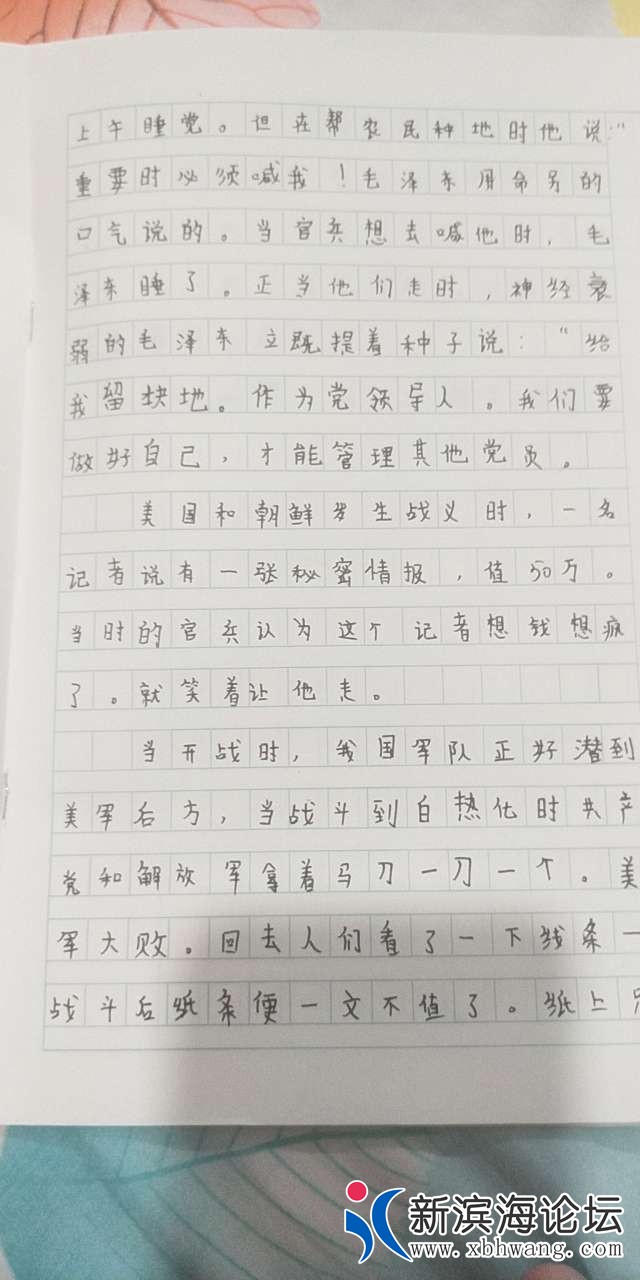 上午睡觉。但在帮农民种地时他说：“
重要时必须喊我！毛泽东用命另的
口气说的。当官兵想去喊他时，毛
泽东睡了。正当他们走时，神经衰
弱的毛泽东立既提着种子说：“给
我留块地。作为党领导人。我们要
做好自己，才能管理其他党员。
美国和朝鲜发生战义时，一名
记者说有一张秘密情报，值50万。
当时的官兵认为这个记者想钱想疯
了。就笑着让他走。
当开战时，我国军队正好潜到
美军后方，当战斗到白热化时共产
党和解放军拿着马刀一刀一个。美
军大败。回去人们看了一下线条一
战斗后纸条便一文不值了。纸上只
新滨海论坛
www.xbhwang.com